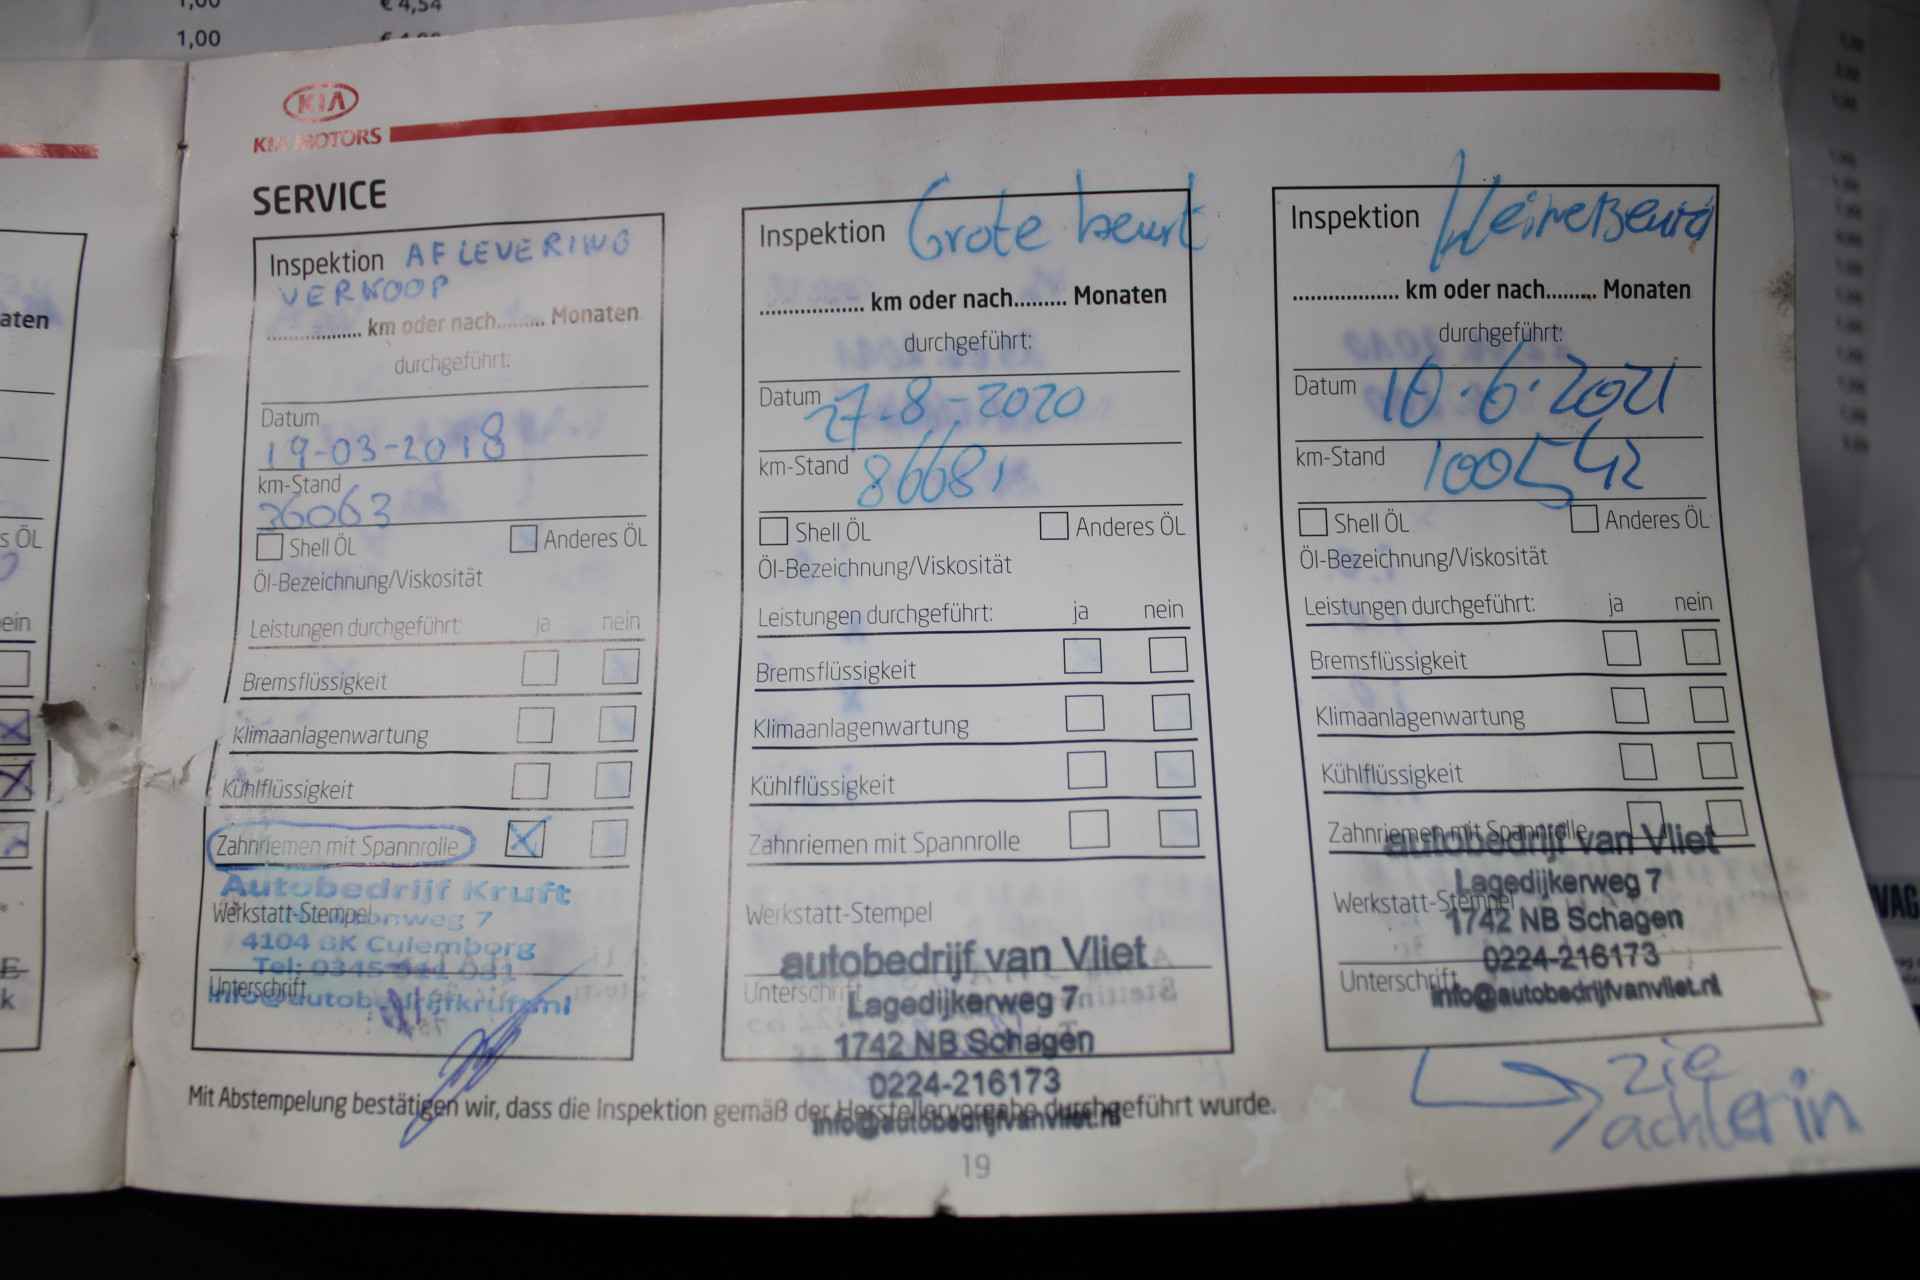 1,00 € 4,54
1,00
KIA
KIA MOTORS
SERVICE
aten
s ÖL
ein
Inspektion AFLEVERING
VERKOOP
.................. km oder nach......... Monaten
durchgeführt:
Datum
19-03-2018
km-Stand
36063
Shell ÖL Anderes ÖL
Öl-Bezeichnung/Viskosität
Leistungen durchgeführt: ja nein
Bremsflüssigkeit
Klimaanlagenwartung
Kühlflüssigkeit
Zahnriemen mit Spannrolle
Autobedrijf Kruft
Werkstatt-Stempel
4104 BK Culemborg
Unterschrift
Inspektion Grote beurt
.................. km oder nach......... Monaten
durchgeführt:
Datum 27-8-2020
km-Stand 86681
Shell ÖL Anderes ÖL
Öl-Bezeichnung/Viskosität
Leistungen durchgeführt: ja nein
Bremsflüssigkeit
Klimaanlagenwartung
Kühlflüssigkeit
Zahnriemen mit Spannrolle
Werkstatt-Stempel
autobedrijf van Vliet
Unterschrift
Lagedijkerweg 7
1742 NB Schagen
0224-216173
info@autobedrijfvanvliet.nl
Inspektion Kleine Beurt
.................. km oder nach......... Monaten
durchgeführt:
Datum 10.6.2021
km-Stand 100542
Shell ÖL Anderes ÖL
Öl-Bezeichnung/Viskosität
Leistungen durchgeführt: ja nein
Bremsflüssigkeit
Klimaanlagenwartung
Kühlflüssigkeit
Zahnriemen mit Spannrolle
autobedrijf van Vliet
Lagedijkerweg 7
Werkstatt-Stempel
1742 NB Schagen
0224-216173
Unterschrift
info@autobedrijfvanvliet.nl
zie
achterin
Mit Abstempelung bestätigen wir, dass die Inspektion gemäß der Herstellervorgabe durchgeführt wurde.
19